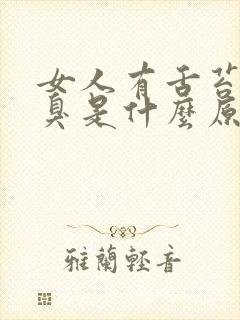 女人有舌苔
臭是什麼原
雅蘭輕音